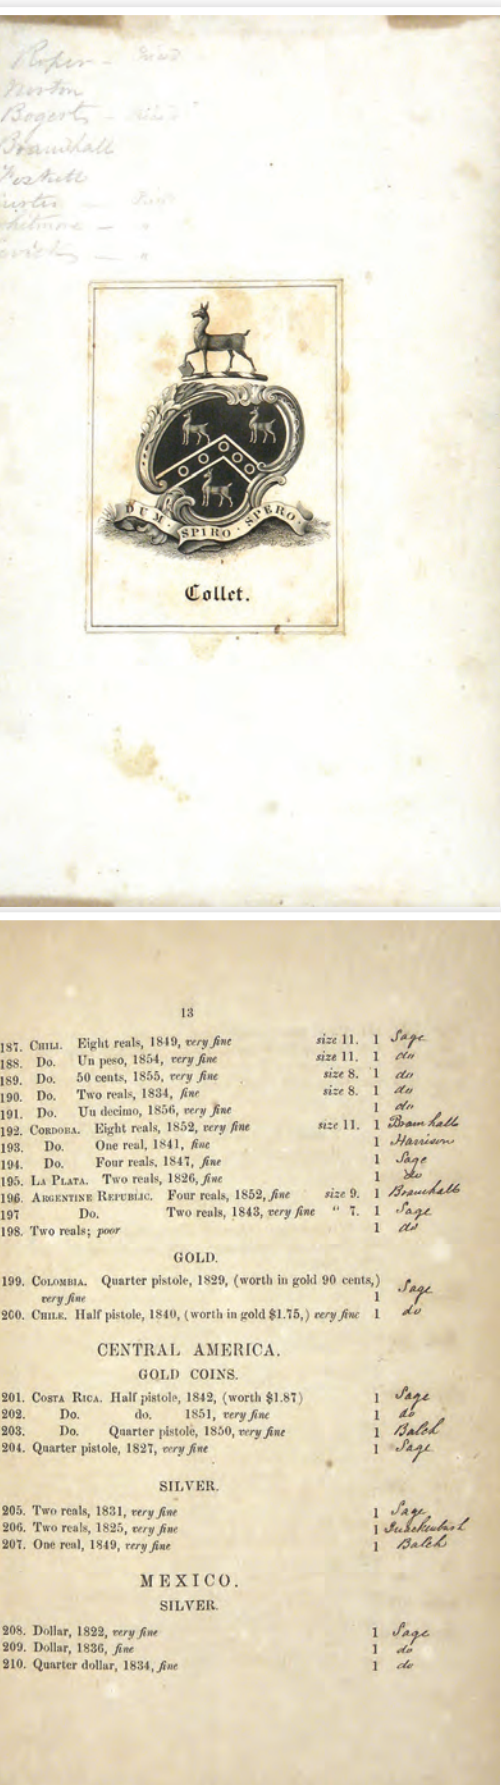 Roper -
Norton
Bogert -
Bramhall
Foskett
DUM · SPIRO · SPERO.
Collet.
13
187. CHILI. Eight reals, 1849, very fine size 11. 1 Sage
188. Do. Un peso, 1854, very fine size 11. 1 do
189. Do. 50 cents, 1855, very fine size 8. 1 do
190. Do. Two reals, 1834, fine size 8. 1 do
191. Do. Un decimo, 1856, very fine 1 do
192. CORDOBA. Eight reals, 1852, very fine size 11. 1 Bramhall
193. Do. One real, 1841, fine 1 Harrison
194. Do. Four reals, 1847, fine 1 Sage
195. LA PLATA. Two reals, 1826, fine 1 do
196. ARGENTINE REPUBLIC. Four reals, 1852, fine size 9. 1 Bramhall
197 Do. Two reals, 1843, very fine " 7. 1 Sage
198. Two reals; poor 1 do
GOLD.
199. COLOMBIA. Quarter pistole, 1829, (worth in gold 90 cents,)
very fine 1 Sage
200. CHILE. Half pistole, 1840, (worth in gold $1.75,) very fine 1 do
CENTRAL AMERICA.
GOLD COINS.
201. COSTA RICA. Half pistole, 1842, (worth $1.87) 1 Sage
202. Do. do. 1851, very fine 1 do
203. Do. Quarter pistole, 1850, very fine 1 Balch
204. Quarter pistole, 1827, very fine 1 Sage
SILVER.
205. Two reals, 1831, very fine 1 Sage
206. Two reals, 1825, very fine 1 Quackenbush
207. One real, 1849, very fine 1 Balch
MEXICO.
SILVER.
208. Dollar, 1822, very fine 1 Sage
209. Dollar, 1836, fine 1 do
210. Quarter dollar, 1834, fine 1 do